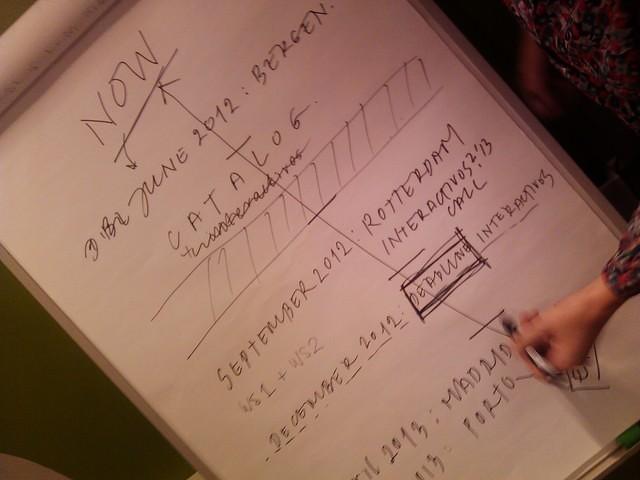 NOW
JUNE 2012: BERGEN.
CATALOG.
SEPTEMBER 2012: ROTTERDAM
INTERACTIVOS?'13
CALL
WS1 + WS2
DECEMBER 2012: DEADLINE INTERACTIVOS
2013: MADRID
PORTO